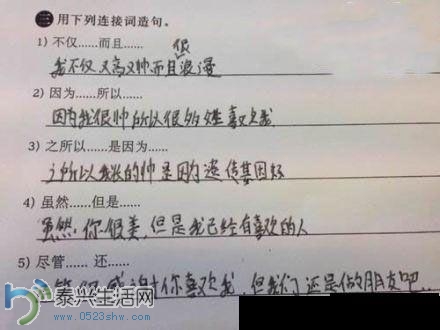 三 用下列连接词造句。
1) 不仅……而且……
我不仅又高又帅而且很浪漫
2) 因为……所以……
因为我很帅所以很多姓喜欢我
3) 之所以……是因为……
之所以我长的帅是因为遗传基因好
4) 虽然……但是……
虽然你很美,但是我已经有喜欢的人
5) 尽管…… 还……
感谢你喜欢我,但我们还是做朋友吧..
泰兴生活网
www.0523shw.com